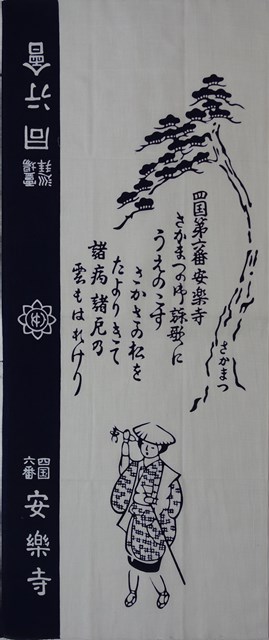 四国第六番安楽寺
さかまつの御詠歌に
うえのこす
さかさの松を
たよりきて
諸病諸厄乃
雲もはれけり
さかまつ
四国
六番
安樂寺
巡拝
霊場
同行會